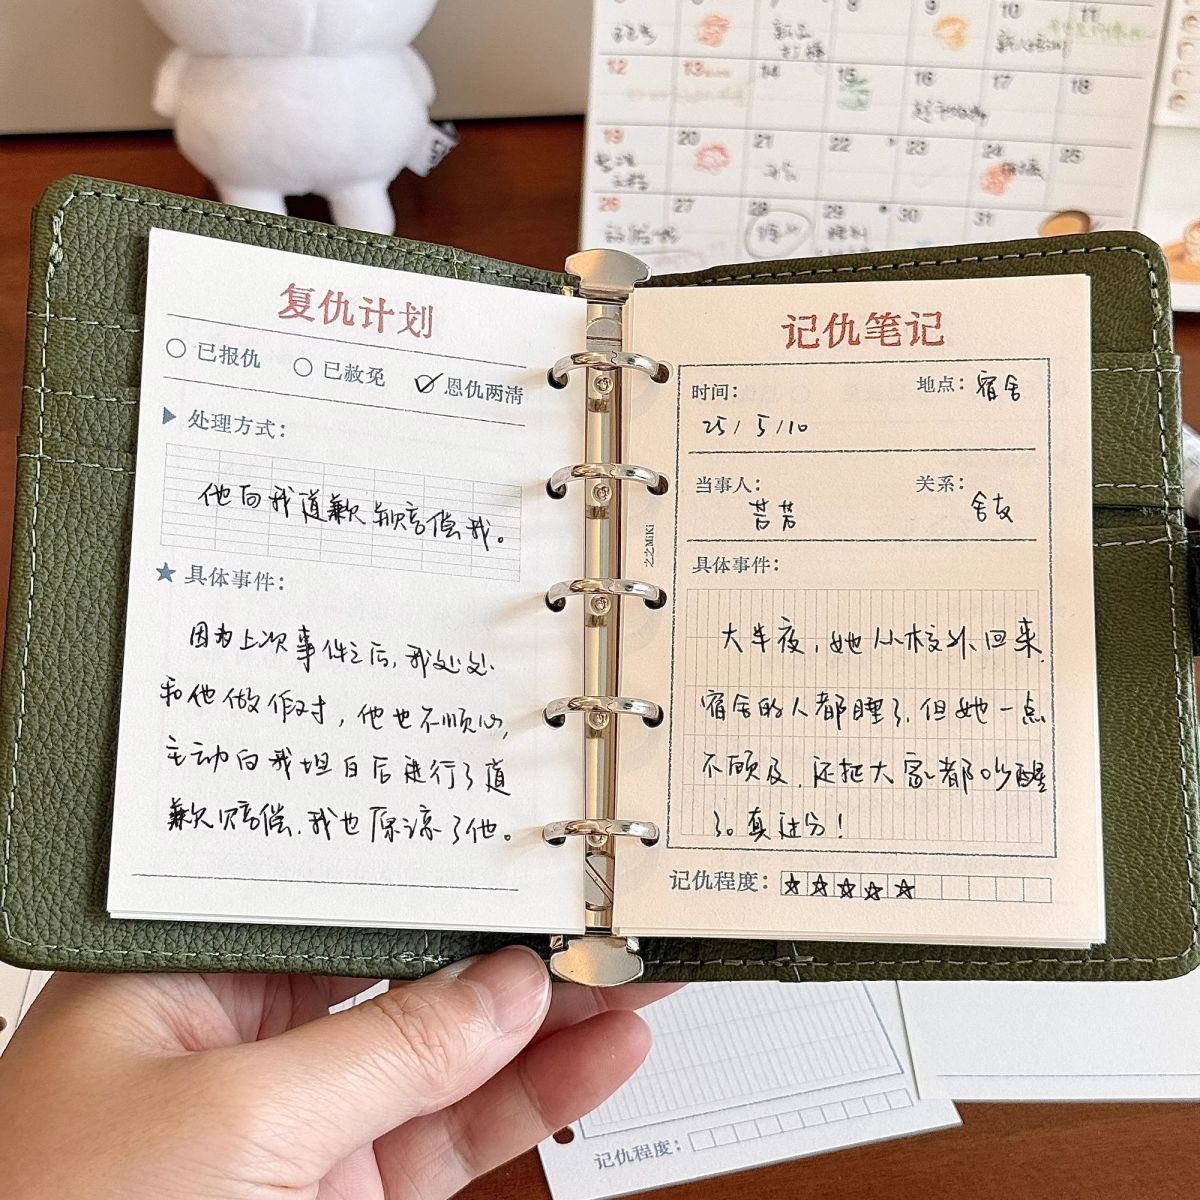 复仇计划
已报仇
已赦免
恩仇两清
处理方式：
他向我道歉并赔偿我。
具体事件：
因为上次事件之后，我处处
和他做作对，他也不顺心，
主动向我坦白后进行了道
歉赔偿，我也原谅了他。
记仇笔记
时间：
地点：宿舍
25/5/10
当事人：
关系：
芳芳
舍友
之之MiKi
具体事件：
大半夜，她从校外回来，
宿舍的人都睡了，但她一点
不顾及，还把大家都吵醒
了。真过分！
记仇程度：
8
9
10
11
12
13
14
15
16
17
18
19
20
21
22
23
24
25
26
27
28
29
30
31
记仇程度：